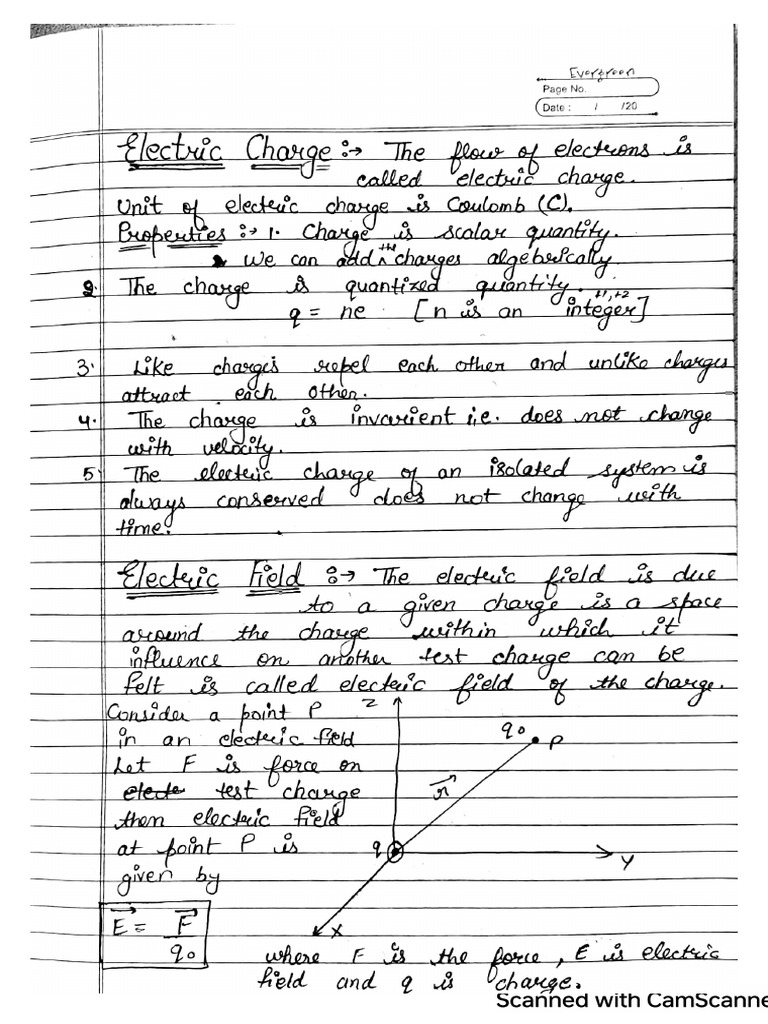 Evergreen
Page No.
Date : / /20
Electric Charge :→ The flow of electrons is
called electric charge.
Unit of electric charge is Coulomb (C).
Properties :→ 1. Charge is scalar quantity.
• We can add the charges algebrically
2. The charge is quantized quantity.
q = ne [n is an integer] +1, +2
3. Like charges repel each other and unlike charges
attract each other.
4. The charge is invarient i.e. does not change
with velocity.
5. The electric charge of an isolated system is
always conserved does not change with
time.
Electric Field :→ The electric field is due
to a given charge is a space
around the charge within which it
influence on another test charge can be
felt is called electric field of the charge.
Consider a point P
in an electric field
Let F is force on
test charge
then electric field
at point P is
given by
E⃗ = F⃗ / q₀
Z
q₀
P
r⃗
q
Y
X
where F is the force, E is electric
field and q is charge.
Scanned with CamScanne